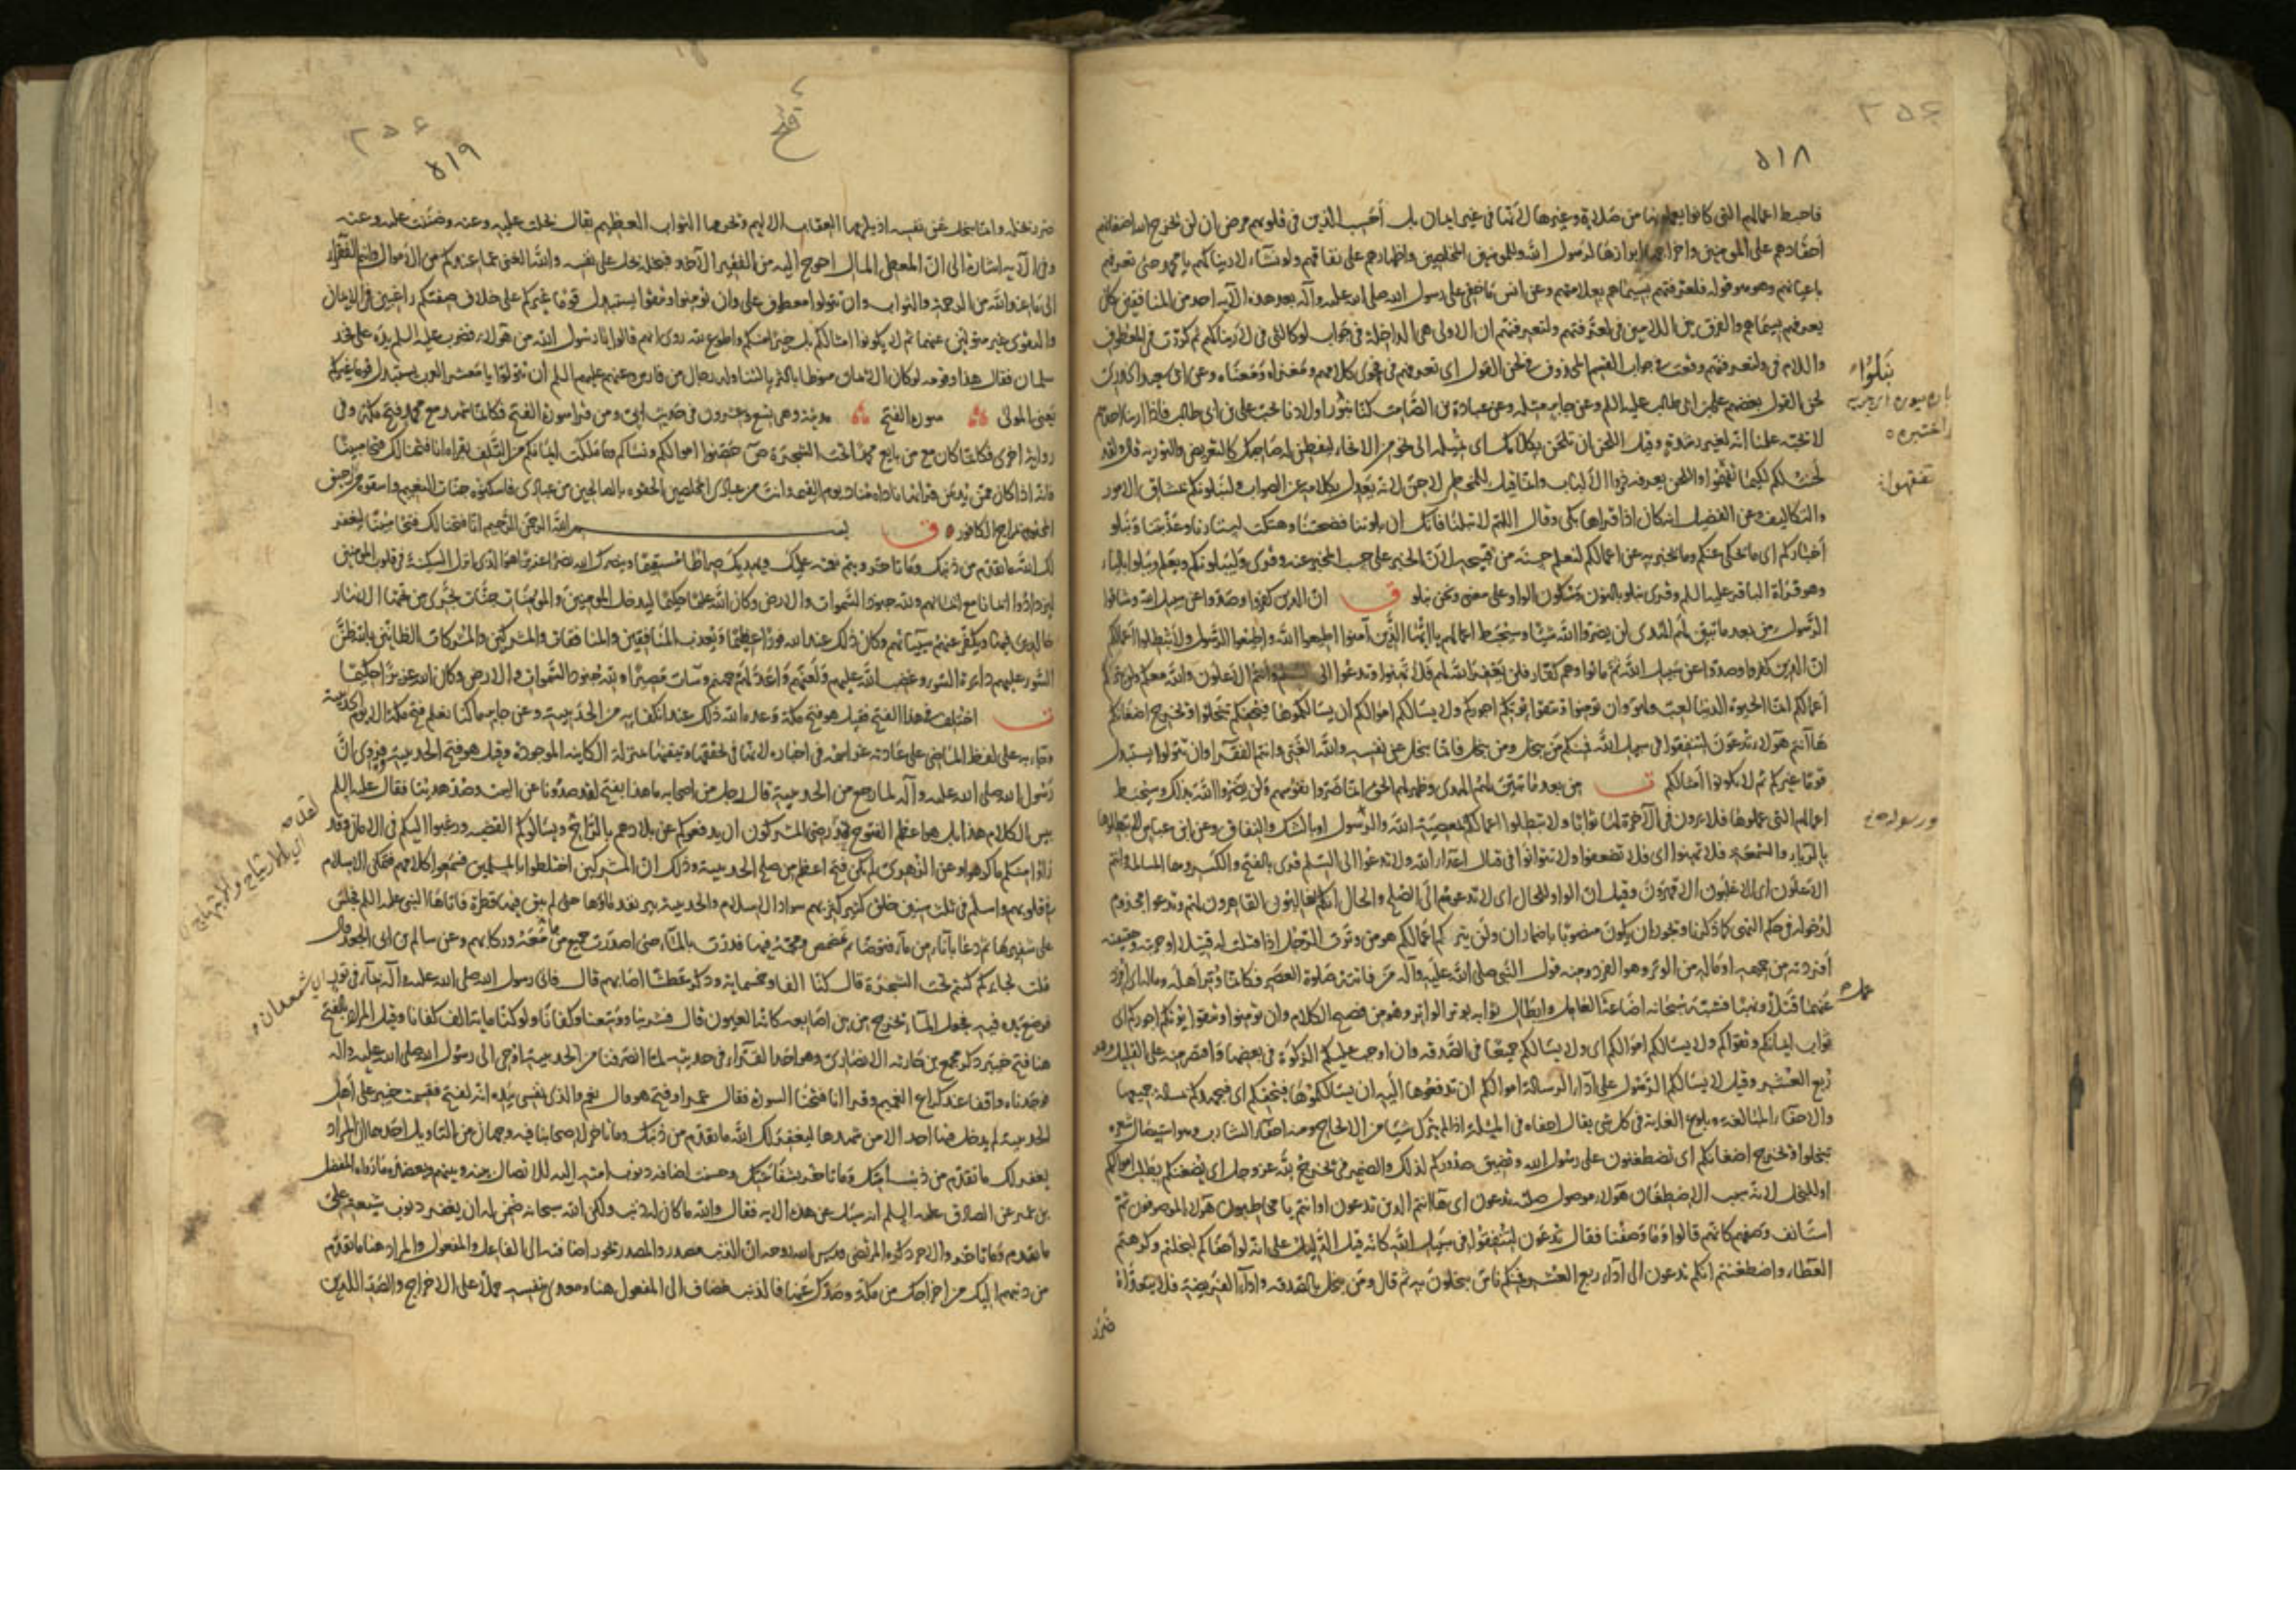 ٥١٨
فاحبط اعمالهم التى كانوا يعملونها من صلاة وغيرها لانها فى غير ايمان بل أحسب الذين فى قلوبهم مرض ان لن يخرج الله اضغانهم
أحقادهم على المؤمنين واخراجها ابرازها لرسول الله وللمؤمنين المخلصين واظهارهم على نفاقهم ولو نشاء لاريناكهم يا محمد حتى تعرفهم
باعيانهم وهو قوله فلعرفتهم بسيماهم بعلامتهم وعن انس ما خفى على رسول الله صلى الله عليه وآله بعد هذه الآية احد من المنافقين كان
يعرفهم بسيماهم والفرق بين اللامين فى لعرفتهم ولتعرفنهم ان الاولى هى الداخلة فى جواب لو كالتى فى لاريناكهم ثم كررت فى المعطوف
واللام فى ولتعرفنهم وقعت فى جواب القسم المحذوف فى لحن القول اى تعرفنهم فى فحوى كلامهم ومغزاه ومعناه وعن ابى سعيد الخدرى
لحن القول بغضهم على بن ابى طالب عليه السلم وعن جابر مثله وعن عبادة بن الصامت كنا نبور اولادنا بحب على بن ابى طالب فاذا راينا احدهم
لا يحبه علمنا انه لغير رشدة وقيل اللحن ان تلحن بكلامك اى تميله الى نحو من الانحاء ليفطن له صاحبك كالتعريض والتورية قال ولقد
لحنت لكم لكيما تفقهوا واللحن يعرفه ذووا الالباب وانما قيل للمخطى لاحن لانه يعدل بكلامه عن الصواب ولنبلونكم بمشاق الامور
والتكاليف وعن الفضيل انه كان اذا قراها بكى وقال اللهم لا تبلنا فانك ان بلوتنا فضحتنا وهتكت استارنا وعذبتنا ونبلو
أخباركم اى ما يحكى عنكم وما يخبر به عن اعمالكم لنعلم حسنه من قبيحه لان الخبر على حسب المخبر عنه وقرى وليبلونكم ويعلم ويبلو بالياء
وهو قراة الباقر عليه السلم وقرى نبلو بالنون وسكون الواو على معنى ونحن نبلو ق ان الذين كفروا وصدوا عن سبيل الله وشاقوا
الرسول من بعد ما تبين لهم الهدى لن يضروا الله شيئا وسيحبط اعمالهم يا ايها الذين آمنوا اطيعوا الله واطيعوا الرسول ولا تبطلوا اعمالكم
ان الذين كفروا وصدوا عن سبيل الله ثم ماتوا وهم كفار فلن يغفر الله لهم فلا تهنوا وتدعوا الى السلم وانتم الاعلون والله معكم ولن يتركم
اعمالكم انما الحيوة الدنيا لعب ولهو وان تومنوا وتتقوا يوتكم اجوركم ولا يسالكم اموالكم ان يسالكموها فيحفكم تبخلوا ويخرج اضغانكم
ها أنتم هولاء تدعون لتنفقوا فى سبيل الله فمنكم من يبخل ومن يبخل فانما يبخل عن نفسه والله الغنى وانتم الفقراء وان تتولوا يستبدل
قوما غيركم ثم لا يكونوا أمثالكم ت من بعد ما تبين لهم الهدى وظهر لهم الحق انما ضروا نفوسهم ولن يضروا الله بذلك وسيحبط
اعمالهم التى عملوها فلا يرون فى الآخرة لها ثوابا ولا تبطلوا اعمالكم بمعصية الله والرسول او بالشك والنفاق وعن ابن عباس لا تبطلوها
بالرياء والسمعة فلا تهنوا اى فلا تضعفوا ولا تتوانوا فى قتال اعداء الله ولا تدعوا الى السلم قرى بالفتح والكسر وهما المسالمة وانتم
الاعلون اى الاغلبون الاقهرون وقيل ان الواو للحال اى لا تدعوهم الى الصلح والحال انكم الغالبون القاهرون لهم وتدعوا مجزوم
لدخوله فى حكم النهى كما ذكرنا ويجوز ان يكون منصوبا باضمار ان ولن يتركم اعمالكم هو من وترت الرجل اذا قتلت له قتيلا او حربته وحقيقته
أفردته من حميمه او ماله من الوتر وهو الفرد ومنه قول النبى صلى الله عليه وآله من فاتته صلوة العصر فكانما وتر أهله وماله اى افرد
عنهما قتلا ونهبا فشبه سبحانه اضاعة العامل وابطال ثوابه بوتر الواتر وهو من فصيح الكلام وان تومنوا وتتقوا يوتكم اجوركم اى
ثواب ايمانكم وتقواكم ولا يسالكم اموالكم اى ولا يسالكم جميعها فى الصدقة وان اوجب عليكم الزكوة فى بعضها واقتصر منه على القليل وهو
ربع العشر وقيل لا يسالكم الرسول على اداء الرسالة اموالكم ان تدفعوها اليه ان يسالكموها فيحفكم اى فيجهدكم بمسالة جميعها
والاحفاء المبالغة وبلوغ الغاية فى كل شى يقال احفاه فى المسئلة اذا لم يترك شيا من الالحاح ومنه احفاء الشارب وهو استيصال شعره
تبخلوا ويخرج اضغانكم اى تضطغنون على رسول الله وتضيق صدوركم لذلك والضمير فى يخرج لله عز وجل اى يضغنكم بطلب اموالكم
او للبخل لانه سبب الاضطغان هولاء موصول صلته تدعون اى ها انتم الذين تدعون او انتم يا مخاطبون هولاء الموصوفون ثم
استانف وصفهم كانهم قالوا وما وصفنا فقال تدعون لتنفقوا فى سبيل الله كانه قيل الدليل على انه لو احفاكم لبخلتم وكرهتم
العطاء واضطغنتم انكم تدعون الى اداء ربع العشر فمنكم ناس يبخلون به ثم قال ومن يبخل بالصدقة واداء الفريضة فلا يتعداه
ضرر
نبلوا
تفقهوا
ورسوله
فتح
٥١٩
ضرر بخله وانما يبخل عن نفسه اذ يلزمها العقاب الاليم ويحرمها الثواب العظيم يقال بخلت عليه وعنه وضننت عليه وعنه
وفى الآية اشارة الى ان المعطى المال احوج اليه من الفقير الآخذ فبخله بخل على نفسه والله الغنى عما عندكم من الاموال وانتم الفقراء
الى ما عند الله من الرحمة والثواب وان تتولوا معطوف على وان تومنوا وتتقوا يستبدل قوما غيركم على خلاف صفتكم راغبين فى الايمان
والتقوى غير متولين عنهما ثم لا يكونوا امثالكم بل خيرا منكم واطوع لله روى انهم قالوا يا رسول الله من هولاء فضرب عليه السلم يده على فخذ
سلمان فقال هذا وقومه لو كان الايمان منوطا بالثريا لناوله رجال من فارس وعنهم عليهم السلم ان تتولوا يا معشر العرب يستبدل قوما غيركم
يعنى الموالى سورة الفتح مدنية وهى تسع وعشرون فى حديث ابى ومن قرا سورة الفتح فكانما شهد مع محمد فتح مكة وفى
رواية اخرى فكانما كان مع من بايع محمدا تحت الشجرة ص حصنوا اموالكم ونساكم وما ملكت ايمانكم من التلف بقراءة انا فتحنا لك فتحا مبينا
فانه اذا كان ممن يدمن قراتها ناداه مناد يوم القيمة انت من عبادى المخلصين الحقوه بالصالحين من عبادى فاسكنوه جنات النعيم واسقوه من الرحيق
المختوم بمزاج الكافور ق بسم الله الرحمن الرحيم انا فتحنا لك فتحا مبينا ليغفر
لك الله ما تقدم من ذنبك وما تاخر ويتم نعمته عليك ويهديك صراطا مستقيما وينصرك الله نصرا عزيزا هو الذى انزل السكينة فى قلوب المومنين
ليزدادوا ايمانا مع ايمانهم ولله جنود السموات والارض وكان الله عليما حكيما ليدخل المومنين والمومنات جنات تجرى من تحتها الانهار
خالدين فيها ويكفر عنهم سيئاتهم وكان ذلك عند الله فوزا عظيما ويعذب المنافقين والمنافقات والمشركين والمشركات الظانين بالله ظن
السوء عليهم دائرة السوء وغضب الله عليهم ولعنهم واعد لهم جهنم وساءت مصيرا ولله جنود السموات والارض وكان الله عزيزا حكيما
ت اختلف فى هذا الفتح فقيل هو فتح مكة وعده الله ذلك عند انكفايه من الحديبية وعن جابر ما كنا نعلم فتح مكة الا يوم الحديبية
وجاء به على لفظ الماضى على عادته عز اسمه فى اخباره لانها فى تحققها وتيقنها بمنزلة الكاينة الموجودة وقيل هو فتح الحديبية فروى ان
رسول الله صلى الله عليه وآله لما رجع من الحديبية قال رجل من اصحابه ما هذا بفتح لقد صدونا عن البيت وصد هدينا فقال عليه السلم
بئس الكلام هذا بل هو اعظم الفتوح قد رضى المشركون ان يدفعوكم عن بلادهم بالراح ويسالوكم القضية ورغبوا اليكم فى الامان وقد
راوا منكم ما كرهوا وعن الزهرى لم يكن فتح اعظم من صلح الحديبية وذلك ان المشركين اختلطوا بالمسلمين فسمعوا كلامهم فتمكن الاسلام
فى قلوبهم واسلم فى ثلث سنين خلق كثير كثر بهم سواد الاسلام والحديبية بير نفد ماؤها حتى لم يبق فيها قطرة فاتاها النبى عليه السلم فجلس
على شفيرها ثم دعا باناء من ماء فتوضا ثم تمضمض ومجه فيها فدرت بالماء حتى اصدرت جميع من معه وركابهم وعن سالم بن ابى الجعد قال
قلت لجابر كم كنتم تحت الشجرة قال كنا الفا وخمسماية وذكر عطشا اصابهم قال فاتى رسول الله صلى الله عليه وآله بماء فى تور
فوضع يده فيه فجعل الماء يخرج من بين اصابعه كانها العيون قال فشربنا ووسعنا وكفانا ولو كنا ماية الف كفانا وقيل المراد بالفتح
هنا فتح خيبر ذكر مجمع بن حارثة الانصارى وهو احد القراء فى حديثه لما انصرفنا من الحديبية اوحى الى رسول الله صلى الله عليه وآله
فوجدناه واقفا عند كراع الغميم وقرا انا فتحنا السورة فقال عمر او فتح هو قال نعم والذى نفسى بيده انه لفتح فقسمت خيبر على أهل
الحديبية لم يدخل فيها احد الا من شهدها ليغفر لك الله ما تقدم من ذنبك وما تاخر لاصحابنا فيه وجهان من التاويل احدهما ان المراد
يغفر لك ما تقدم من ذنب امتك وما تاخر بشفاعتك وحسنت اضافة ذنوب امته اليه للاتصال بينه وبينهم ويعضده ما رواه المفضل
بن عمر عن الصادق عليه السلم انه سئل عن هذه الاية فقال والله ما كان له ذنب ولكن الله سبحانه ضمن له ان يغفر ذنوب شيعة على
ما تقدم وما تاخر والاخر ذكره المرتضى قدس الله روحه ان الذنب مصدر والمصدر يجوز اضافته الى الفاعل والمفعول والمراد هنا ما تقدم
من ذنبهم اليك من اخراجك من مكة وصدك عنها فالذنب مضاف الى المفعول هنا ومعدى بنفسه حملا على الاخراج والصد اللذين